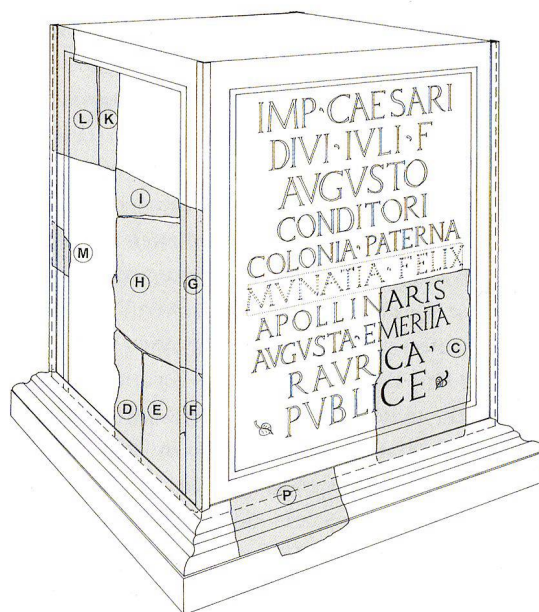 IMP·CAESARI
DIVI·IVLI·F
AVGVSTO
CONDITORI
COLONIA·PATERNA
MVNATIA·FELIX
APOLLINARIS
AVGVSTA·EMERITA
RAVRICA·
PVBLICE
L
K
I
M
H
G
D
E
F
C
P